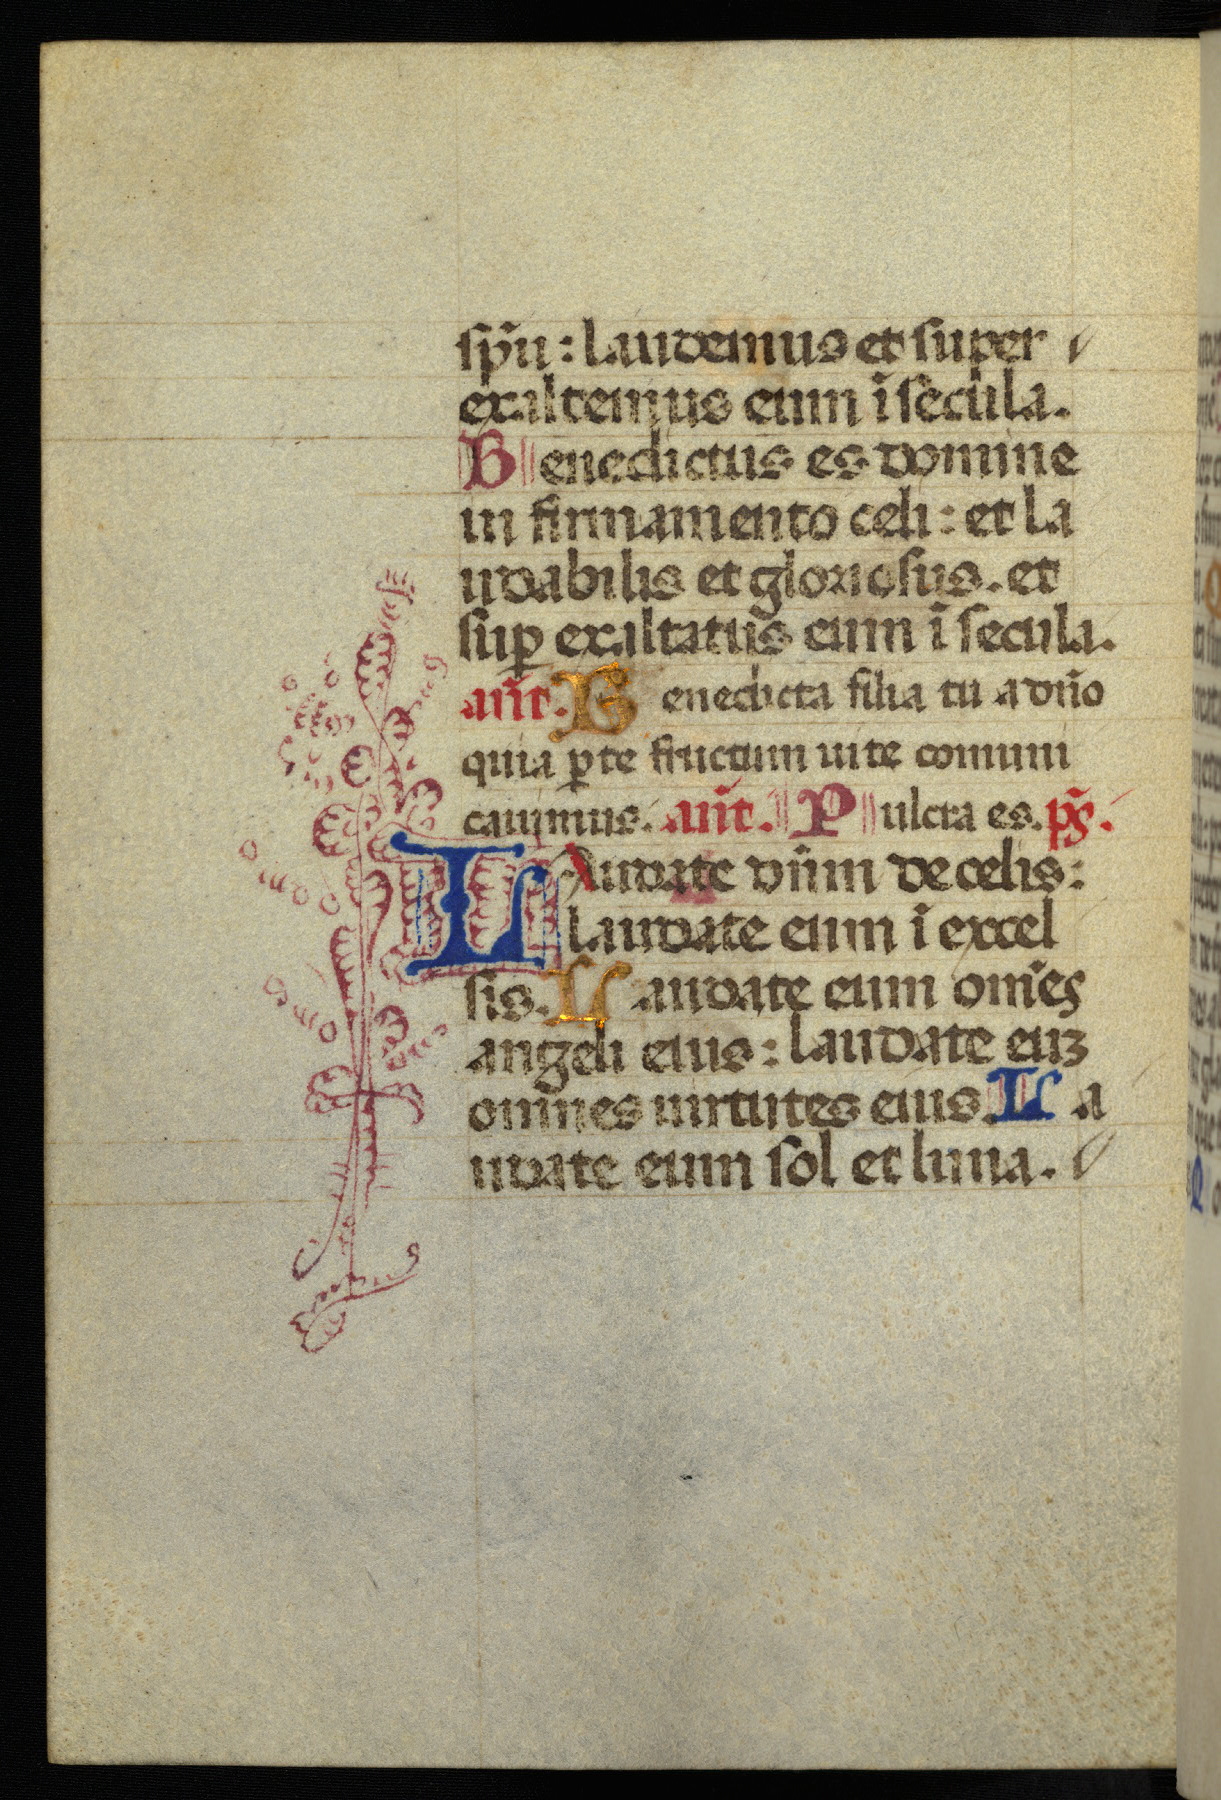 spũ: laudemus et super
exaltemus eum ĩ secula.
Benedictus es domine
in firmamento celi: et la
udabilis et gloriosus. et
suꝑ exaltatus eum ĩ secula.
añt. Benedicta filia tu a dño
quia ꝑ te fructum uite comuni
cauimus. añt. Pulcra es. pš.
LAudate dñm de celis:
laudate eum ĩ excel
sis. Laudate eum om̃es
angeli eius: laudate euꝫ
om̃nes uirtutes eius. La
udate eum sol et luna.